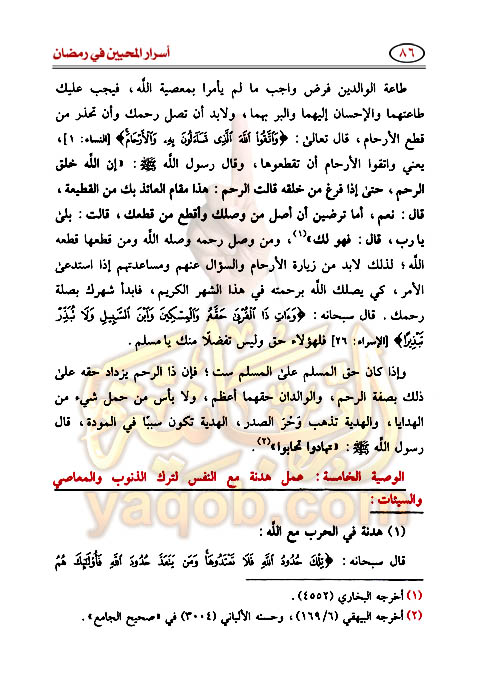 ٨٦
أسرار المحبين في رمضان
طاعة الوالدين فرض واجب ما لم يأمرا بمعصية اللَّه، فيجب عليك
طاعتهما والإحسان إليهما والبر بهما، ولابد أن تصل رحمك وأن تحذر من
قطع الأرحام، قال تعالىٰ: ﴿وَاتَّقُوا اللَّهَ الَّذِي تَسَاءَلُونَ بِهِ وَالْأَرْحَامَ﴾ [النساء: ١]،
يعني واتقوا الأرحام أن تقطعوها، وقال رسول اللَّه ﷺ: «إن اللَّه خلق
الرحم، حتىٰ إذا فرغ من خلقه قالت الرحم: هذا مقام العائذ بك من القطيعة،
قال: نعم، أما ترضين أن أصل من وصلك وأقطع من قطعك، قالت: بلىٰ
يا رب، قال: فهو لك»(١)، ومن وصل رحمه وصله اللَّه ومن قطعها قطعه
اللَّه؛ لذلك لابد من زيارة الأرحام والسؤال عنهم ومساعدتهم إذا استدعىٰ
الأمر، كي يصلك اللَّه برحمته في هذا الشهر الكريم، فابدأ شهرك بصلة
رحمك. قال سبحانه: ﴿وَءَاتِ ذَا الْقُرْبَىٰ حَقَّهُ وَالْمِسْكِينَ وَابْنَ السَّبِيلِ وَلَا تُبَذِّرْ
تَبْذِيرًا﴾ [الإسراء: ٢٦] فلهؤلاء حق وليس تفضلًا منك يا مسلم.
وإذا كان حق المسلم علىٰ المسلم ست؛ فإن ذا الرحم يزداد حقه علىٰ
ذلك بصفة الرحم، والوالدان حقهما أعظم، ولا بأس من حمل شيء من
الهدايا، والهدية تذهب وَحَرَ الصدر، الهدية تكون سببًا في المودة، قال
رسول اللَّه ﷺ: «تهادوا تحابوا»(٢).
الوصية الخامسة: عمل هدنة مع النفس لترك الذنوب والمعاصي
والسيئات:
(١) هدنة في الحرب مع اللَّه:
قال سبحانه: ﴿تِلْكَ حُدُودُ اللَّهِ فَلَا تَعْتَدُوهَا وَمَن يَتَعَدَّ حُدُودَ اللَّهِ فَأُولَٰئِكَ هُمُ
(١) أخرجه البخاري (٤٥٥٢).
(٢) أخرجه البيهقي (١٦٩/٦)، وحسنه الألباني (٣٠٠٤) في «صحيح الجامع».
yaqob.com